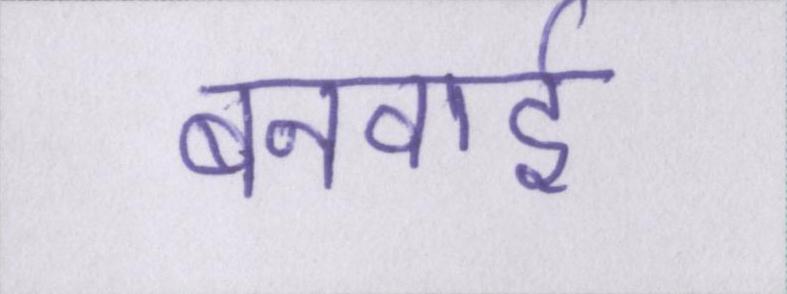 बनवाई